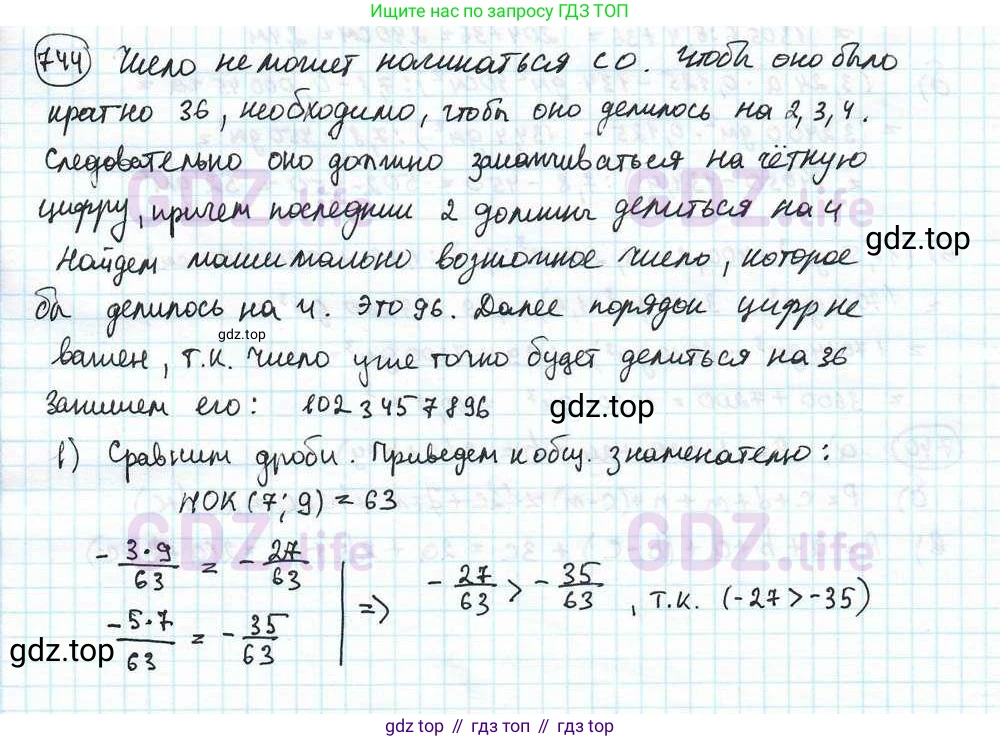 Ищите по запросу ГДЗ ТОП
744 Число не может начинаться с 0. Чтобы оно было
кратно 36, необходимо, чтобы оно делилось на 2, 3, 4.
Следовательно оно должно заканчиваться на чётную
цифру, причем последнии 2 должны делиться на 4
Найдем машимально возможное число, которое
бы делилось на 4. Это 96. Далее порядок цифр не
важен, т.к. число уже точно будет делиться на 36
Запишем его: 1023457896
в) Сравним дроби. Приведем к общ. знаменателю:
НОК (7; 9) = 63
- 3·9/63 = - 27/63
-5·7/63 = - 35/63
=> - 27/63 > - 35/63, т.к. (-27 > -35)
GDZ.life
GDZ.life
GDZ.life
GDZ.life
gdz.top
gdz.top
gdz.top
gdz.top
gdz top // гдз топ // gdz.top